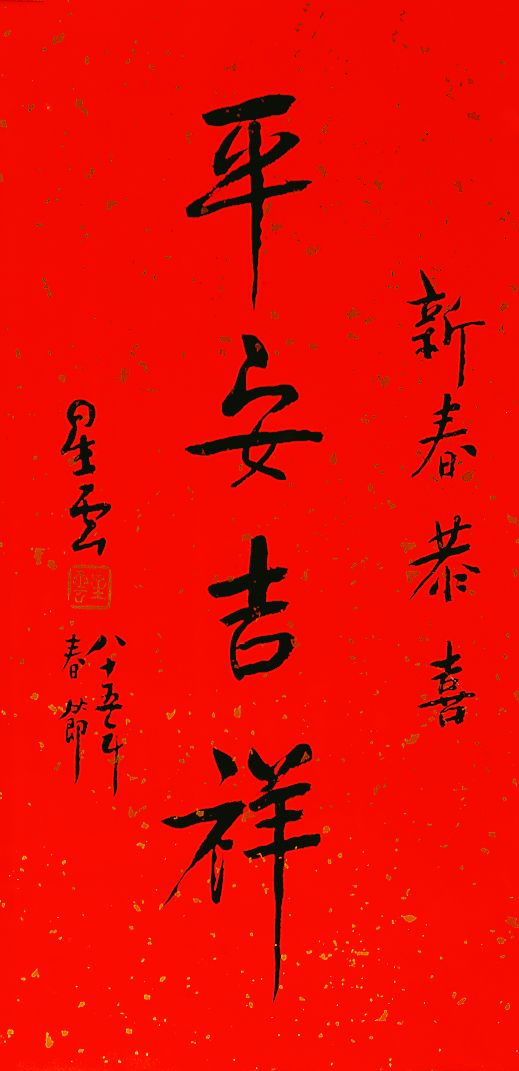 新春恭喜
平安吉祥
星雲
星雲
八十五年
春節